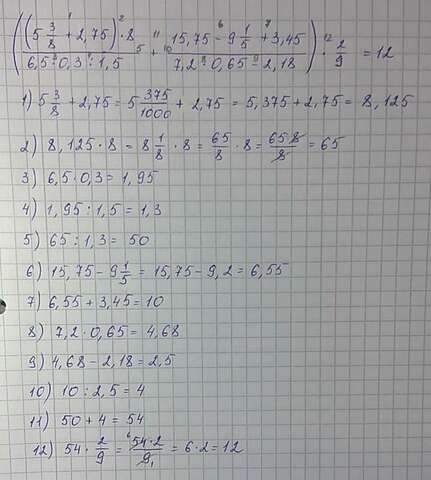 ((5 3/8 + 2,75) · 8 / 6,5 · 0,3 : 1,5 + 15,75 - 9 1/5 + 3,45 / 7,2 · 0,65 - 2,18) · 2/9 = 12
1) 5 3/8 + 2,75 = 5 375/1000 + 2,75 = 5,375 + 2,75 = 8,125
2) 8,125 · 8 = 8 1/8 · 8 = 65/8 · 8 = 65 8/8 = 65
3) 6,5 · 0,3 = 1,95
4) 1,95 : 1,5 = 1,3
5) 65 : 1,3 = 50
6) 15,75 - 9 1/5 = 15,75 - 9,2 = 6,55
7) 6,55 + 3,45 = 10
8) 7,2 · 0,65 = 4,68
9) 4,68 - 2,18 = 2,5
10) 10 : 2,5 = 4
11) 50 + 4 = 54
12) 54 · 2/9 = 54 · 2/9 = 6 · 2 = 12